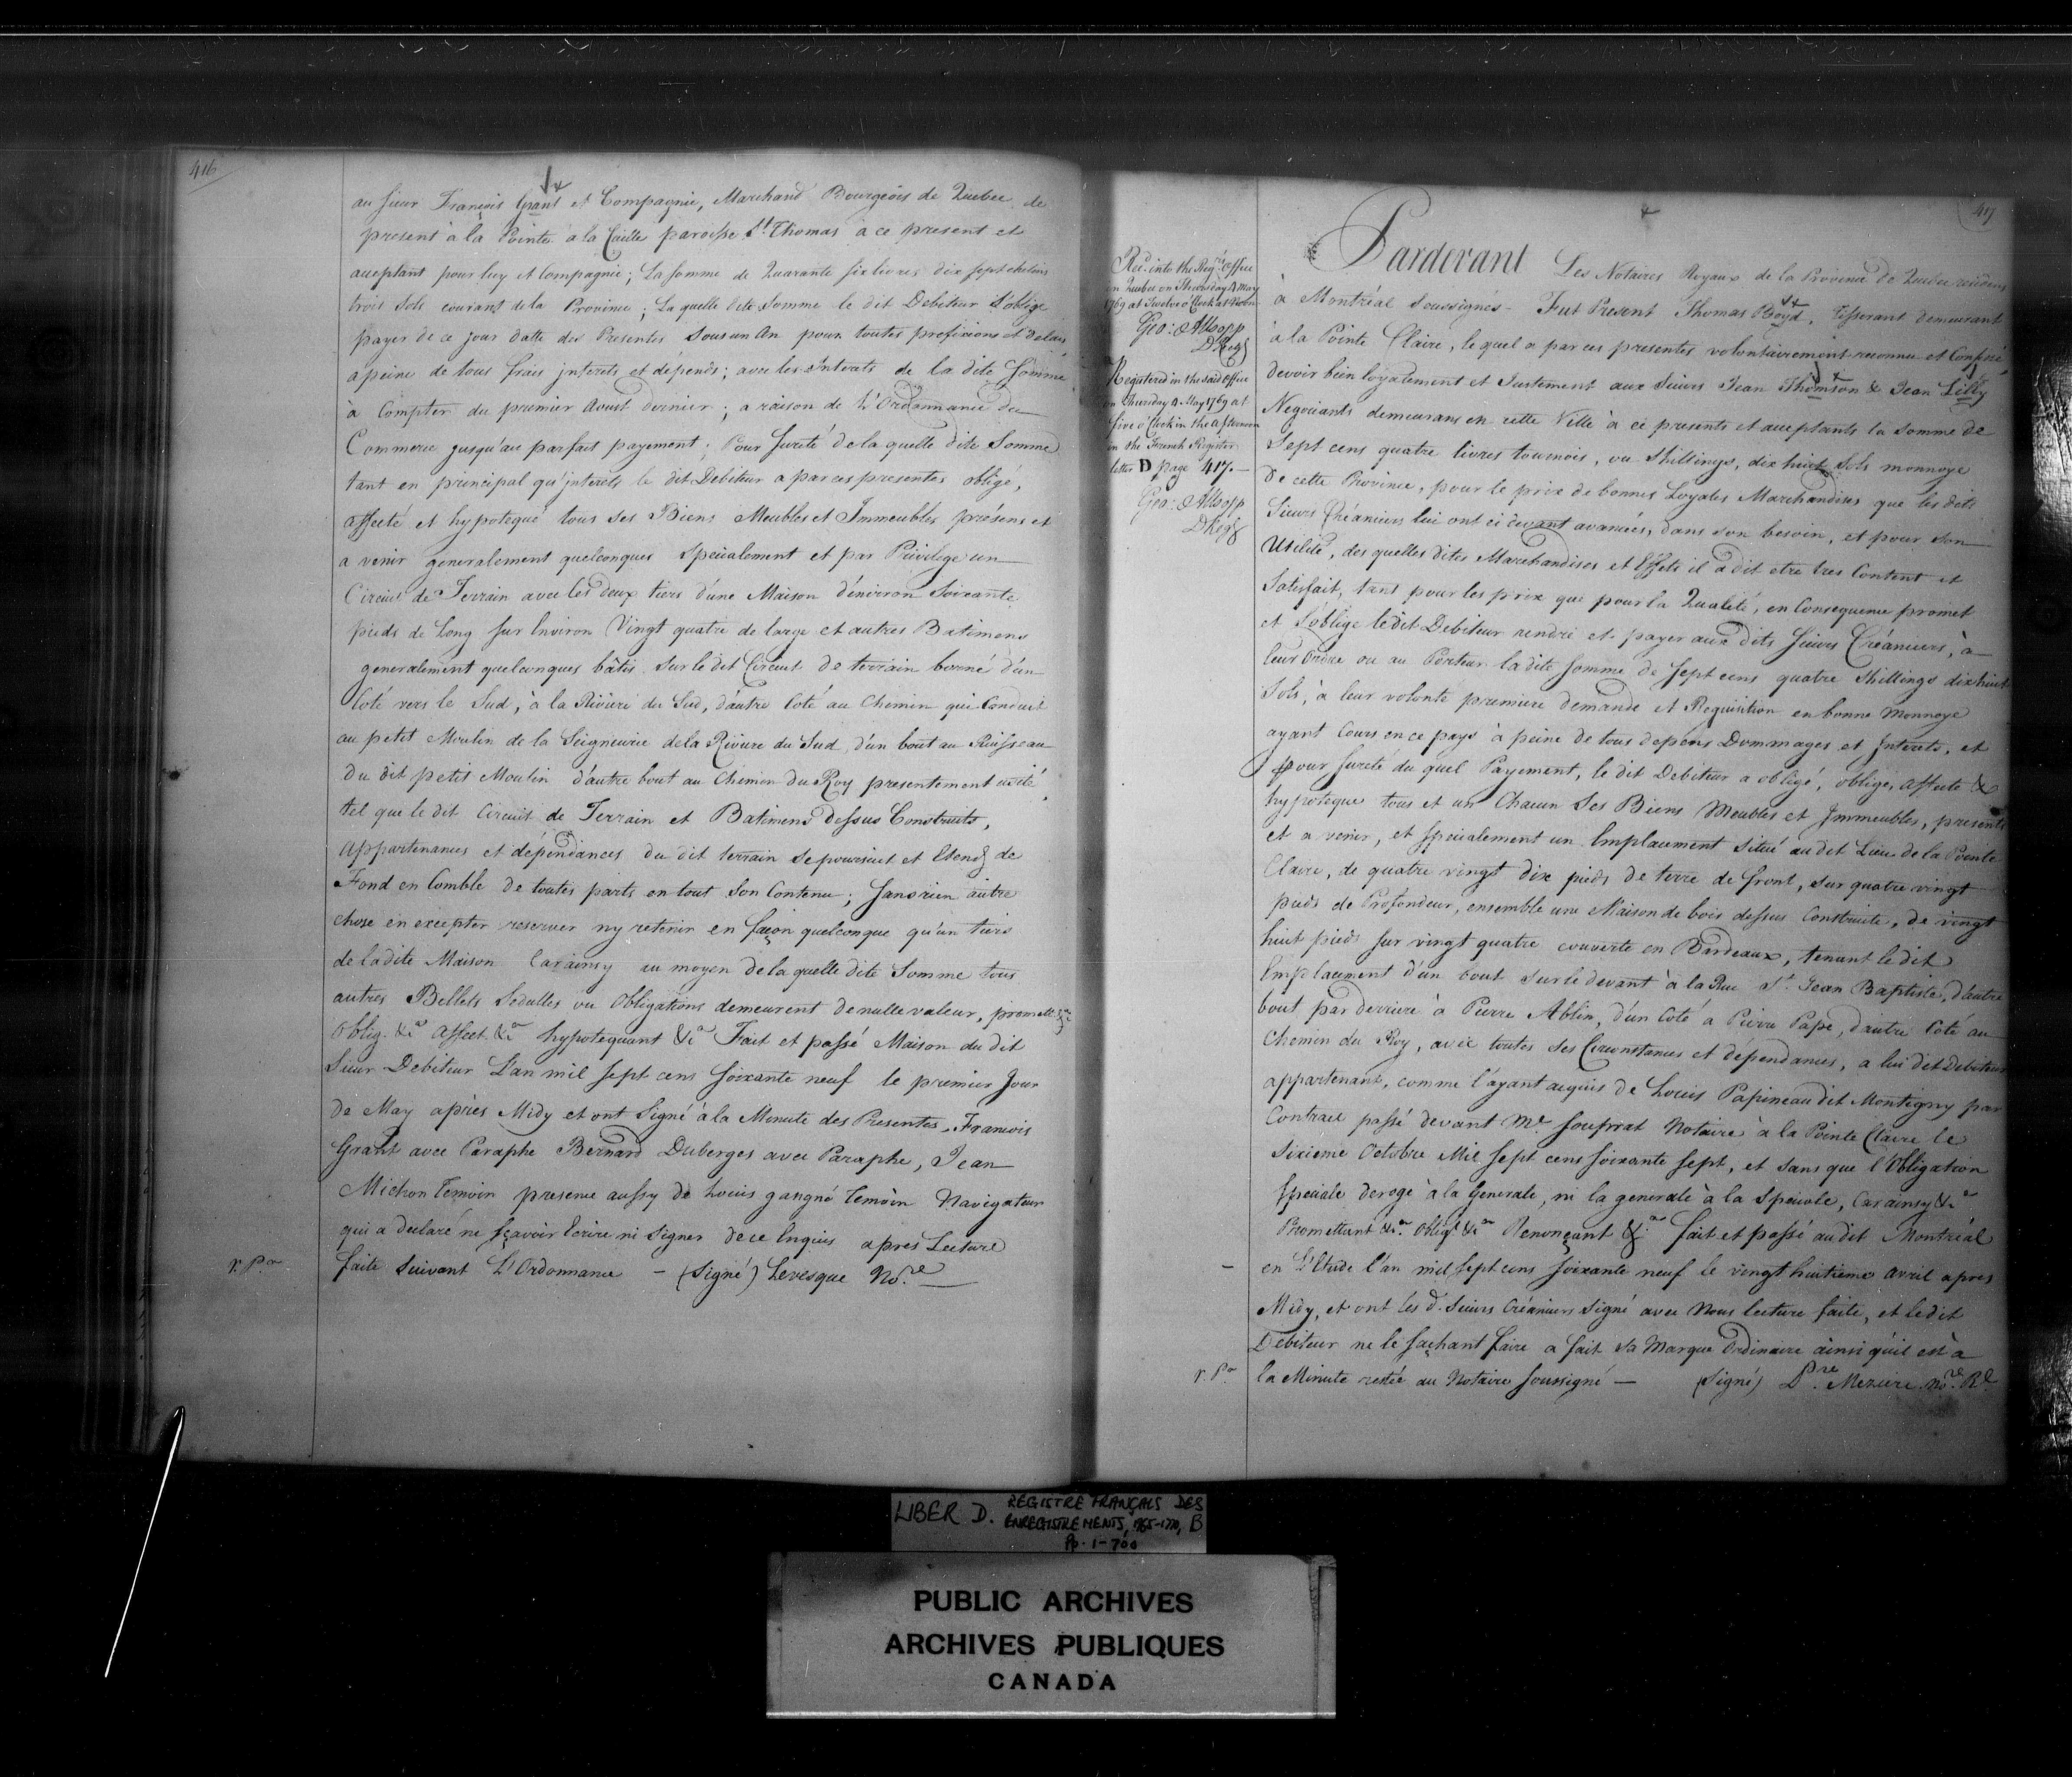 416
au sieur François Grant et Compagnie, Marchand Bourgeois de Quebec de
present à la Pointe a la Caille paroisse St Thomas a ce present et
acceptant pour luy et Compagnie; La somme de Quarante six livres dix sept chelins
trois sols courant de la Province; La quelle dite Somme le dit Debiteur s'oblige
payer de ce jour datte des Presentes sous un An pour toutes prefixions et delais
a peine de tous frais interets et dépends; avec les Interets de la dite Somme
à Compter du premier Aoust dernier; a raison de L'Ordonnance du
Commerce jusqu'au parfait payement; Pour sureté de la quelle dite Somme
tant en principal qu'interets le dit Debiteur a par ces presentes obligé,
affecté et hypotequé tous ses Biens Meubles et Immeubles présens et
a venir generalement quelconques specialement et par Privilege un
Circuit de Terrain avec les deux tiers d'une Maison d'environ Soixante
pieds de Long sur Environ Vingt quatre de large et autres Batimens
generalement quelconques bâtis sur le dit Circuit de terrain borné d'un
Coté vers le Sud, à la Riviere du Sud, d'autre Coté au Chemin qui Conduit
au petit Moulin de la Seigneurie de la Riviere du Sud, d'un bout au Ruisseau
du dit petit Moulin d'autre bout au Chemin du Roy presentement usité,
tel que le dit Circuit de Terrain et Batimens dessus Construits,
appartenances et dépendances du dit terrain se poursuit et Etend de
Fond en Comble de toutes parts en tout son Contenu; sans rien autre
chose en excepter reserver ny retenir en façon quelconque qu'un tiers
de la dite Maison Car ainsy au moyen de la quelle dite Somme tous
autres Billets Sedulles ou Obligations demeurent de nulle valeur, promett. &ca
Oblig. &ca affect. &ca hypotequant &ca Fait et passé Maison du dit
Sieur Debiteur L'an mil sept cens soixante neuf le premier Jour
de May après Midy et ont Signé à la Minute des Presentes, Francois
Grant avec Paraphe Bernard Duberges avec Paraphe, Jean
Michon Temoin presence aussy de Louis gangné Temoin Navigateur
qui a declaré ne sçavoir Ecrire ni signer de ce Enquis apres Lecture
faite suivant L'Ordonnance – (Signé) Levesque No.re
417
Rec.d into the Reg.rs Office
in Quebec on Thursday 4 May
1769 at Twelve o'Clock at Noon
Geo: Allsopp
D Reg
Registered in the said Office
on Thursday 4 May 1769 at
five o'Clock in the afternoon
in the French Register
letter D page 417.–
Geo: Allsopp
D Reg
Pardevant Les Notaires Royaux de la Province de Quebec residens
à Montréal soussignés – Fut Present Thomas Boyd, Tisserant demeurant
à la Pointe Claire, le quel a par ces presentes volontairement reconnu et Confessé
devoir bien loyalement et Justement aux Sieurs Jean Thomson & Jean Lilly
Negociants demeurans en cette Ville à ce presents et acceptants la somme de
Sept cens quatre livres tournois, ou Shillings, dix huit Sols monnoye
de cette Province, pour le prix de bonnes Loyales Marchandises que les dits
Sieurs Créanciers lui ont ci devant avancées, dans son besoin, et pour son
Utilité, des quelles dites Marchandises et Effets il a dit etre tres Content et
Satisfait, tant pour les prix que pour la Qualité, en Consequence promet
et s'oblige le dit Debiteur rendre et payer aux dits Sieurs Créanciers, à
leur Ordre ou au Porteur la dite somme de sept cens quatre Shillings dix huit
Sols, à leur volonté premiere demande et Requisition en bonne Monnoye
ayant Cours en ce pays à peine de tous depens Dommages et Interets, et
pour sureté du quel Payement, le dit Debiteur a obligé, oblige, affecte &
hypoteque tous et un Chacun ses Biens Meubles et Immeubles, presents
et a venir, et specialement un Emplacement situé au dit Lieu de la Pointe
Claire, de quatre vingt dix pieds de terre de front, sur quatre vingt
pieds de Profondeur, ensemble une Maison de bois dessus Construite, de vingt
huit pieds sur vingt quatre couverte en Bardeaux, tenant le dit
Emplacement d'un bout sur le devant à la Rue St. Jean Baptiste, d'autre
bout par derriere à Pierre Ablin, d'un Coté a Pierre Papé, d'autre Coté au
Chemin du Roy, avec toutes ses Circonstances et dépendances, a lui dit Debiteur
appartenant, comme l'ayant acquis de Louis Papineau dit Montigny par
Contract passé devant Me Souprat Notaire à la Pointe Claire le
Sixieme Octobre Mil sept cens soixante sept, et sans que l'Obligation
speciale deroge à la Generale, ni la generale à la Speciale, Car ainsy &ca
Promettant &ca. Oblig.t &ca Renonçant &ca fait et passé au dit Montréal
en L'Etude l'an mil sept cens soixante neuf le vingt huitieme avril apres
Midy, et ont les d. Sieurs Créanciers signé avec Nous lecture faite, et le dit
Debiteur ne le sachant faire a fait sa Marque Ordinaire ainsi qu'il est à
la Minute restée au Notaire soussigné – (Signé) Pre. Mezière. No.re R.l
LIBER D. REGISTRE FRANÇAIS DES
ENREGISTREMENTS, 1765-1770, B
Pp. 1-700
PUBLIC ARCHIVES
ARCHIVES PUBLIQUES
CANADA